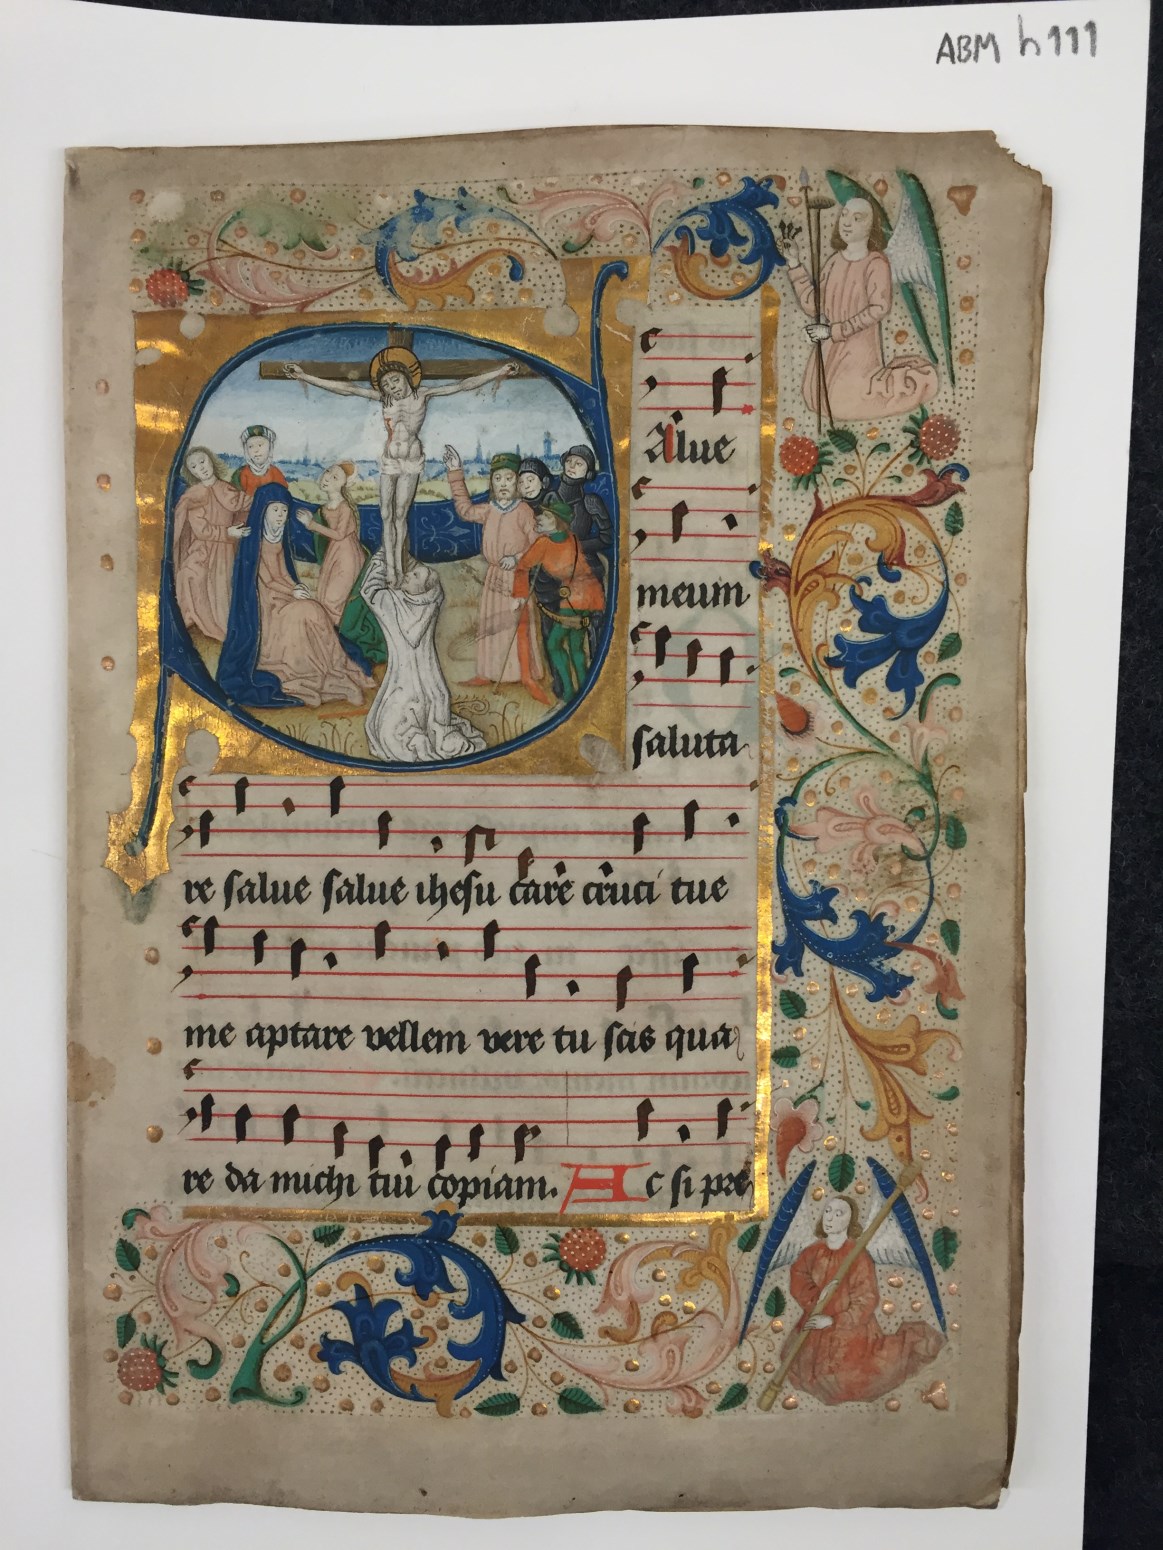 ABM h111
S
Alue
meum
saluta
re salue salue ihesu care cruci tue
me aptare vellem vere tu scis qua
re da michi tui copiam. Ac si pre